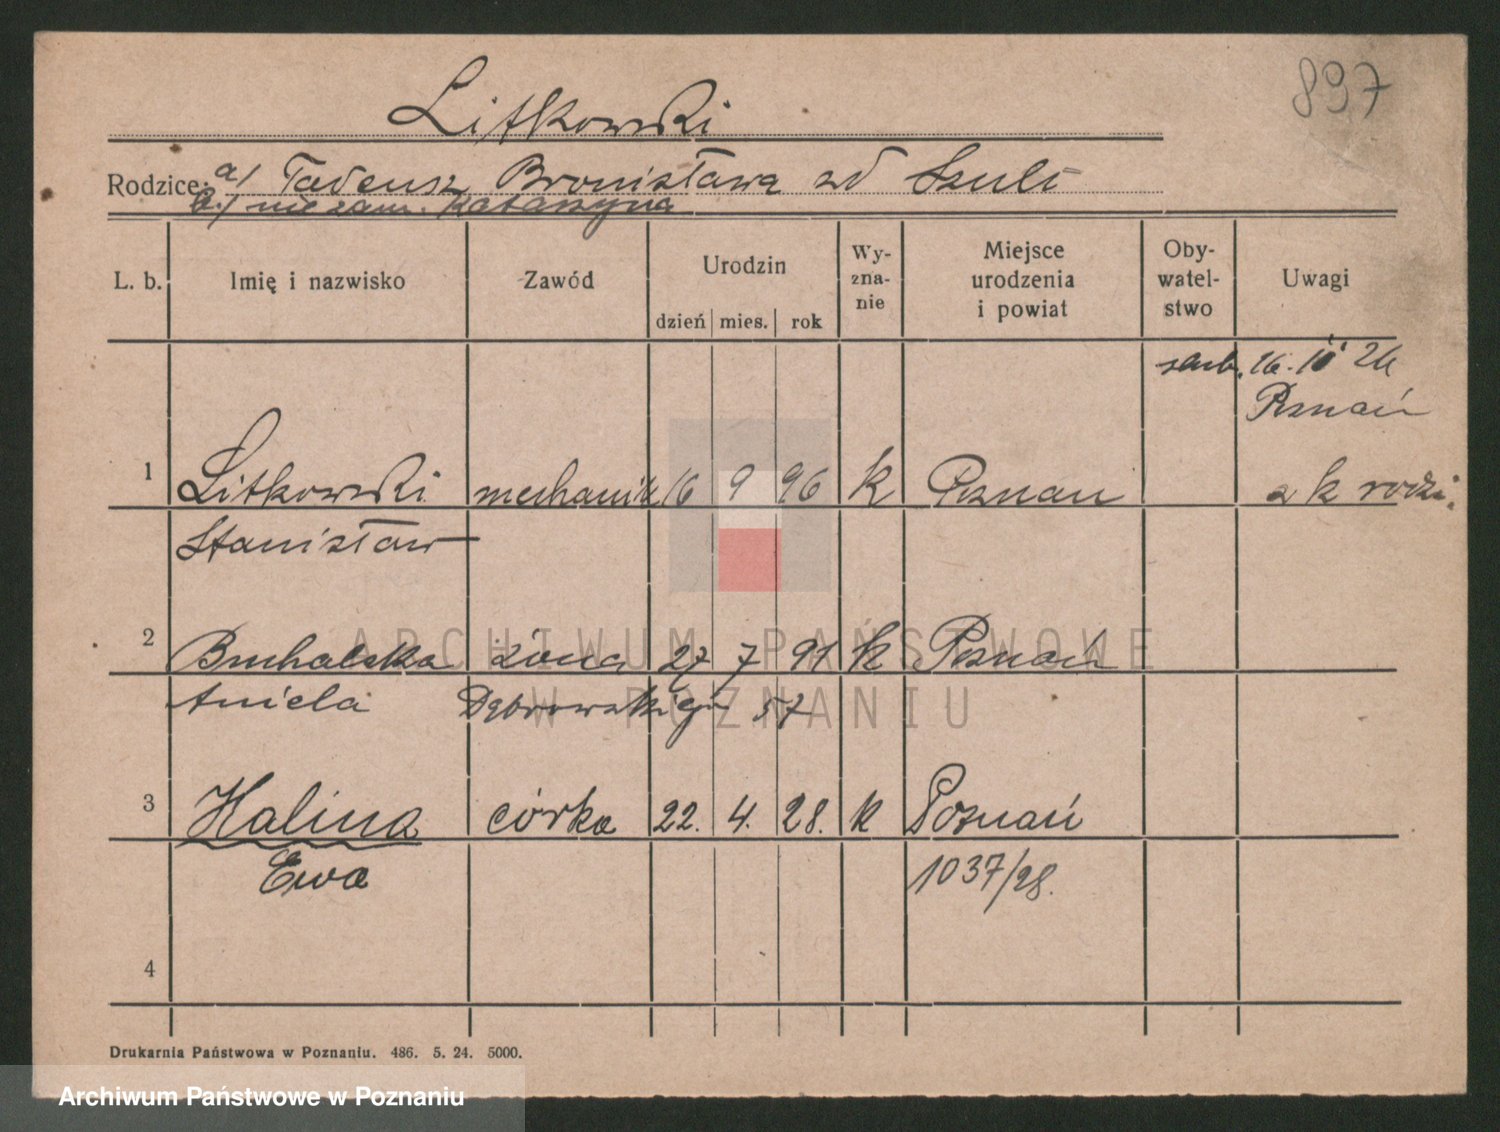 897
Litkowski
Rodzice: a/ Tadeusz Bronisława zd Szulc
b./ niezam. Katarzyna
L. b. Imię i nazwisko Zawód Urodzin dzień mies. rok Wy-zna-nie Miejsce urodzenia i powiat Oby-watel-stwo Uwagi
26
Poznań
1 Litkowski mechanik 16 9 96 k Poznań z k rodzi.
Stanisław
2 Buchalska żona 27 7 91 k Poznań
Aniela Dąbrowskiego 57
3 Halina córka 22. 4. 28. k Poznań
Ewa 1037/28.
4
Drukarnia Państwowa w Poznaniu. 486. 5. 24. 5000.
ARCHIWUM PAŃSTWOWE
W POZNANIU
Archiwum Państwowe w Poznaniu